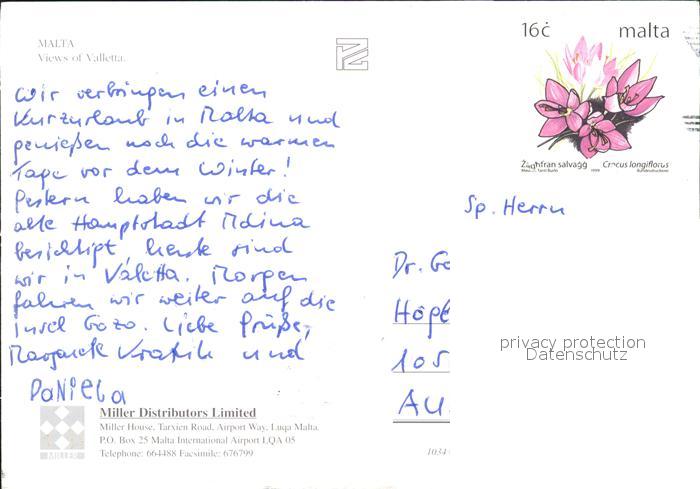 MALTA
Views of Valletta.
16ċ malta
Żagħfran salvaġġ Crocus longiflorus
1999
Wir verbringen einen
Kurzurlaub in Malta und
genießen noch die warmen
Tage vor dem Winter!
Gestern haben wir die
alte Hauptstadt Mdina
besichtigt, heute sind
wir in Valetta. Morgen
fahren wir weiter auf die
Insel Gozo. Liebe Grüße,
und
Daniela
Sp. Herrn
Dr. Ge
105
AU
privacy protection
Datenschutz
Miller Distributors Limited
Miller House, Tarxien Road, Airport Way, Luqa Malta.
P.O. Box 25 Malta International Airport LQA 05
Telephone: 664488 Facsimile: 676799
MILLER
1034